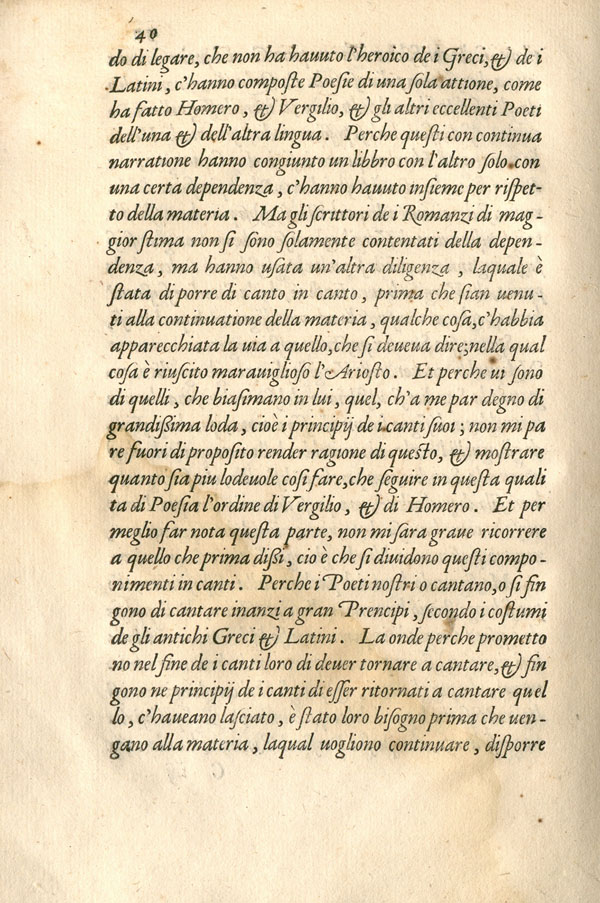 40
do di legare, che non ha hauuto l'heroico de i Greci, & de i
Latini, c'hanno composte Poesie di una sola attione, come
ha fatto Homero, & Vergilio, & gli altri eccellenti Poeti
dell'una & dell'altra lingua. Perche questi con continua
narratione hanno congiunto un libbro con l'altro solo con
una certa dependenza, c'hanno hauuto insieme per rispet-
to della materia. Ma gli scrittori de i Romanzi di mag-
gior stima non si sono solamente contentati della depen-
denza, ma hanno usata un'altra diligenza, laquale è
stata di porre di canto in canto, prima che sian uenu-
ti alla continuatione della materia, qualche cosa, c'habbia
apparecchiata la uia a quello, che si deueua dire; nella qual
cosa è riuscito marauiglioso l'Ariosto. Et perche ui sono
di quelli, che biasimano in lui, quel, ch'a me par degno di
grandißima loda, cioè i principij de i canti suoi; non mi pa
re fuori di proposito render ragione di questo, & mostrare
quanto sia piu lodeuole cosi fare, che seguire in questa quali
ta di Poesia l'ordine di Vergilio, & di Homero. Et per
meglio far nota questa parte, non mi sara graue ricorrere
a quello che prima dißi, cio è che si diuidono questi compo-
nimenti in canti. Perche i Poeti nostri o cantano, o si fin
gono di cantare inanzi a gran Prencipi, secondo i costumi
de gli antichi Greci & Latini. La onde perche prometto
no nel fine de i canti loro di deuer tornare a cantare, & fin
gono ne principij de i canti di esser ritornati a cantare quel
lo, c'haueano lasciato, è stato loro bisogno prima che uen-
gano alla materia, laqual uogliono continuare, disporre